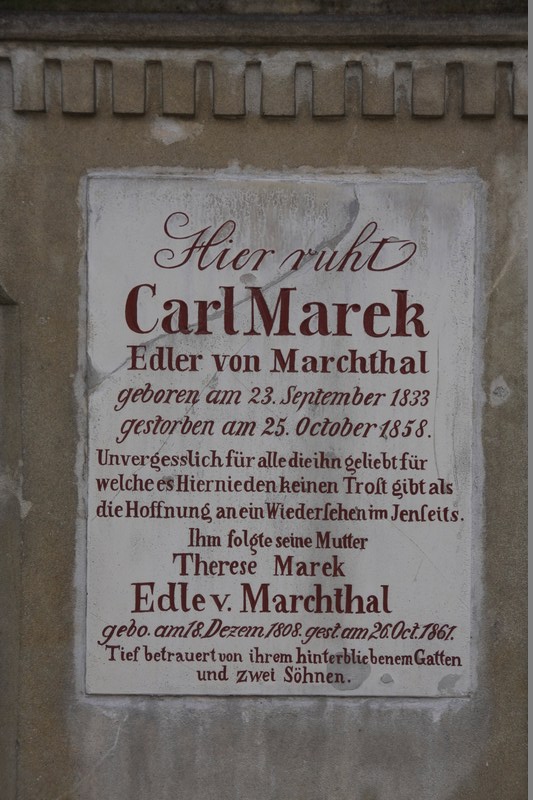 Hier ruht
Carl Marek
Edler von Marchthal
geboren am 23. September 1833
gestorben am 25. October 1858.
Unvergesslich für alle die ihn geliebt für
welche es Hiernieden keinen Troſt gibt als
die Hoffnung an ein Wiederſehen im Jenſeits.
Ihm folgte seine Mutter
Therese Marek
Edle v. Marchthal
gebo. am 18. Dezem 1808. gest. am 26. Oct. 1861.
Tief betrauert von ihrem hinterbliebenem Gatten
und zwei Söhnen.